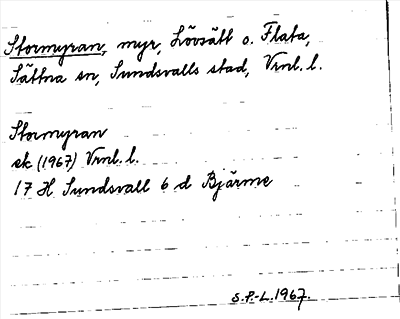 Stormyran, myr, Lövsätt o. Flata,
Sättna sn, Sundsvalls stad, Vrnl. l.
Stormyran
ek (1967) Vrnl. l.
17 H Sundsvall 6 d Bjärme
S.P.-L. 1967.